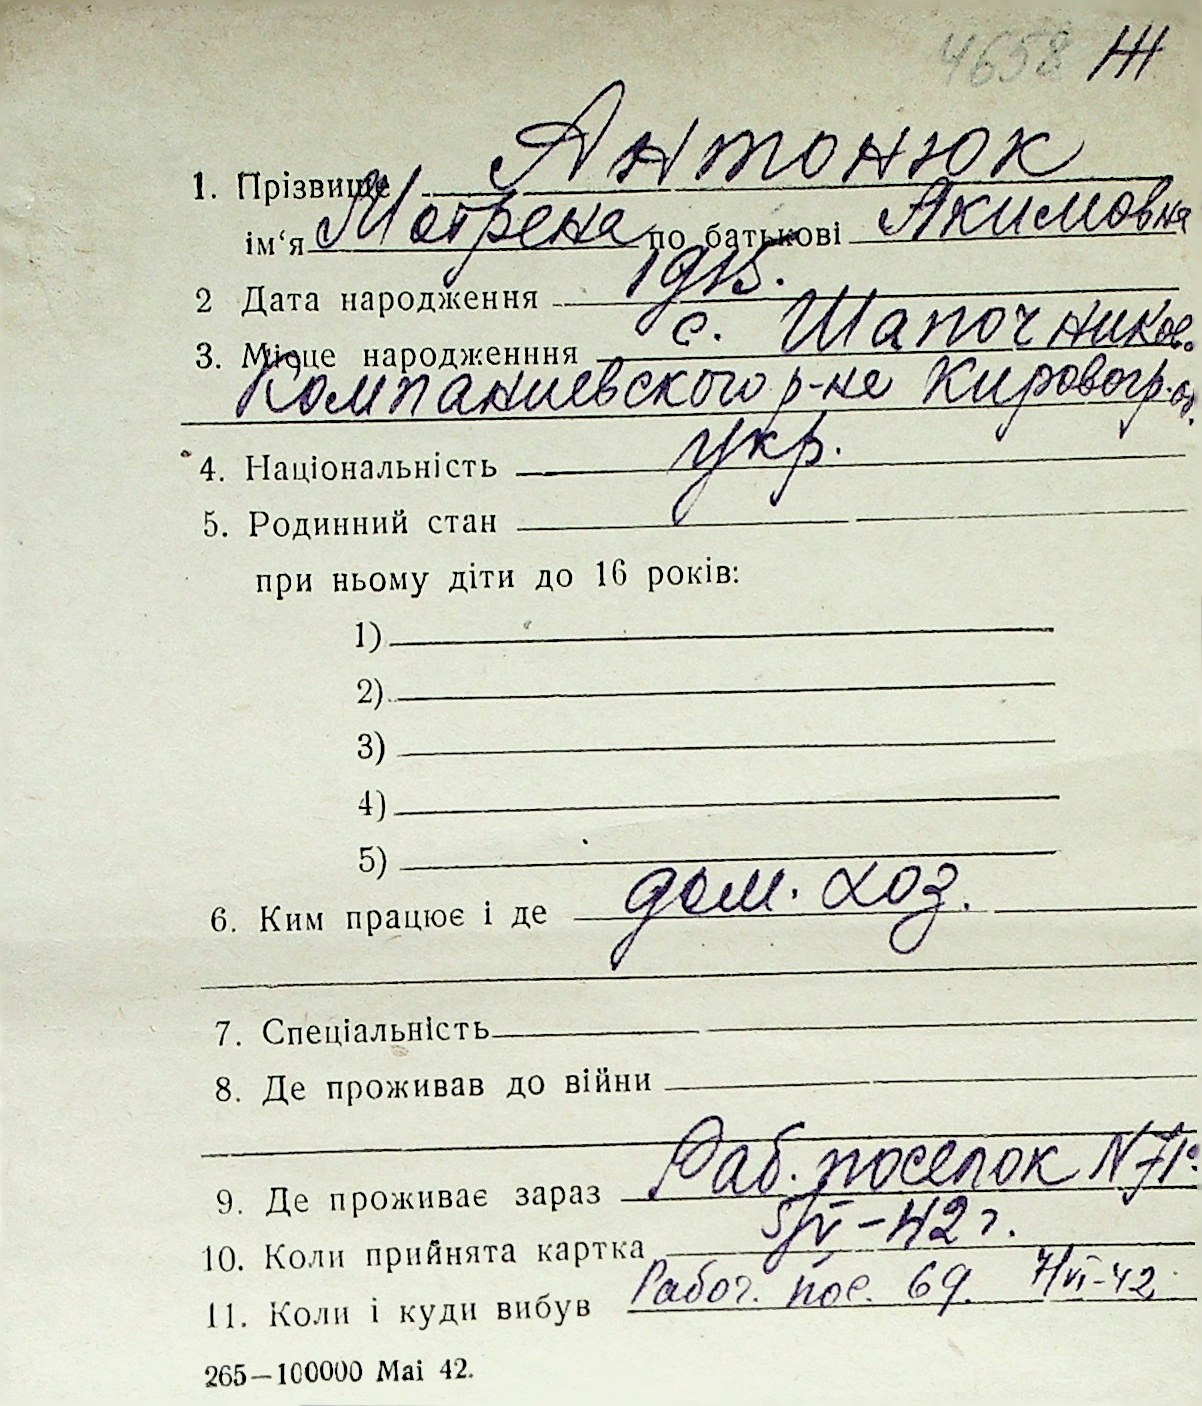 4658 Ж
1. Прізвище Антонюк
ім‘я Мотрена по батькові Акимовна
2 Дата народження 1915.
3. Місце народженння с. Шапочников.
Компаниевского р-на Кировогр. о.
4. Національність укр.
5. Родинний стан
при ньому діти до 16 років:
1)
2)
3)
4)
5)
6. Ким працює і де дом. хоз.
7. Спеціальність
8. Де проживав до війни
9. Де проживає зараз Раб. поселок N 71
10. Коли прийнята картка 5/V-42 г.
11. Коли і куди вибув Рабоч. пос. 69. 7/VI-42
265—100000 Mai 42.